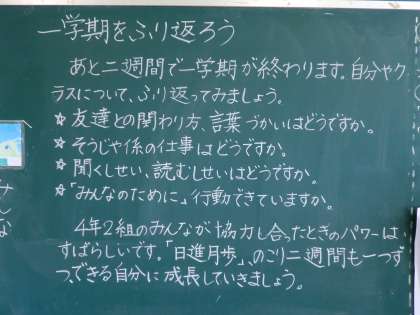 一学期をふり返ろう
あと二週間で一学期が終わります。自分やク
ラスについて、ふり返ってみましょう。
☆友達との関わり方、言葉づかいはどうですか。
☆そうじや係の仕事はどうですか。
☆聞くしせい、読むしせいはどうですか。
☆「みんなのために」行動できていますか。
4年2組のみんなが協力し合ったときのパワーは
すばらしいです。「日進月歩」、のこり二週間も一つず
つ、できる自分に成長していきましょう。
みんな